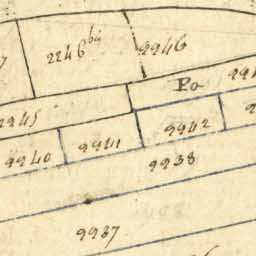 2246 bis
2246
Po
2245
2242
2241
2240
2238
2237